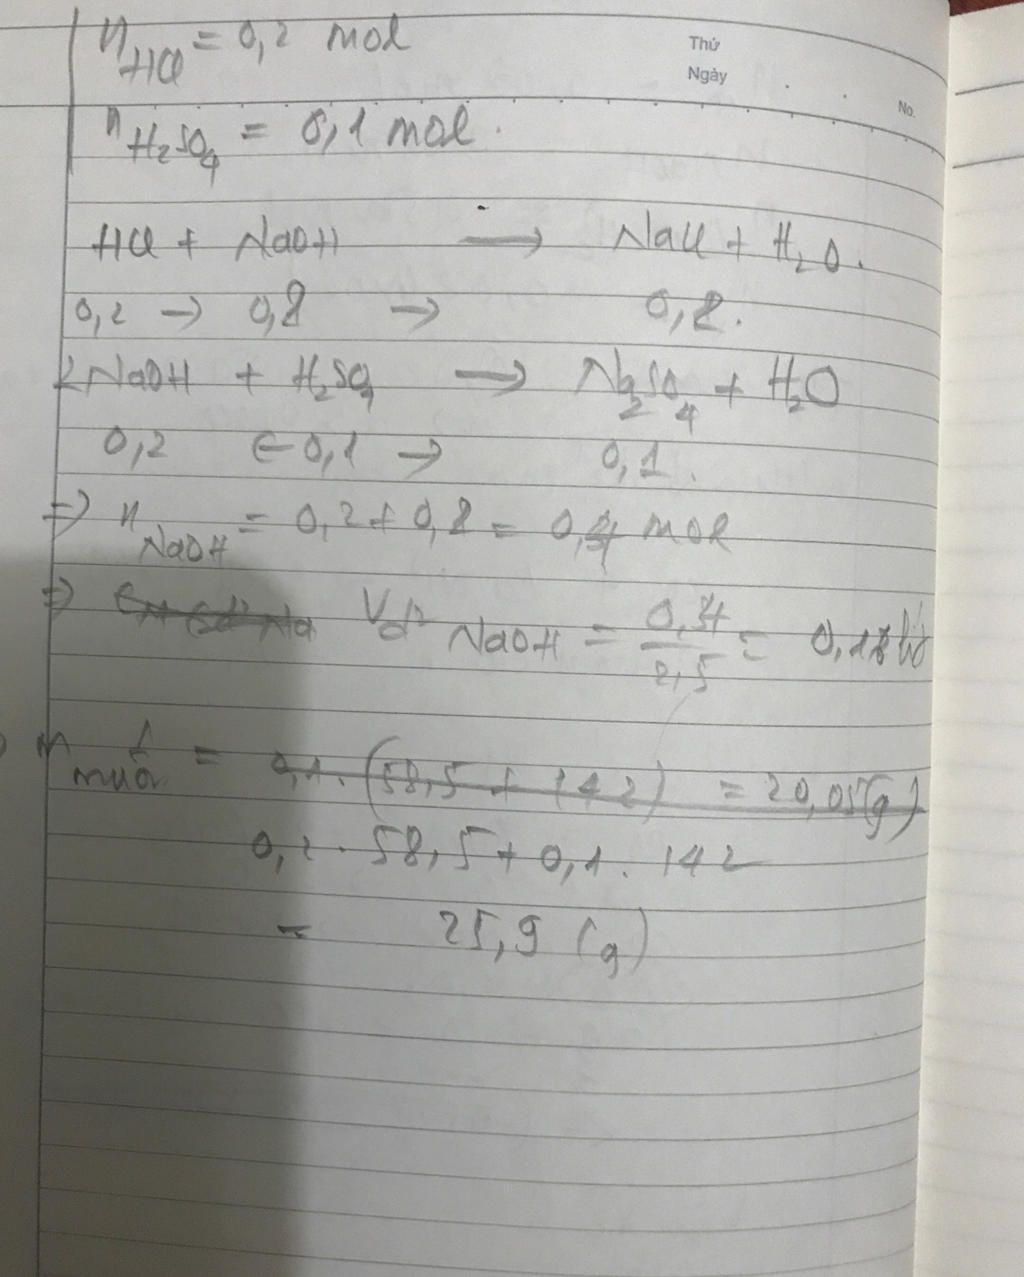 n HCl = 0,2 mol
Thứ
Ngày
No.
n H₂SO₄ = 0,1 mol.
HCl + NaOH → NaCl + H₂O.
0,2 → 0,2 → 0,2.
2NaOH + H₂SO₄ → Na₂SO₄ + H₂O
0,2 ← 0,1 → 0,1.
=> n NaOH = 0,2 + 0,2 = 0,4 mol
=> Vd² NaOH = 0,4 / 2,5 =
m muối = 0,1. (58,5 + 142) = 20,05 (g)
0,2. 58,5 + 0,1. 142
= 25,9 (g)